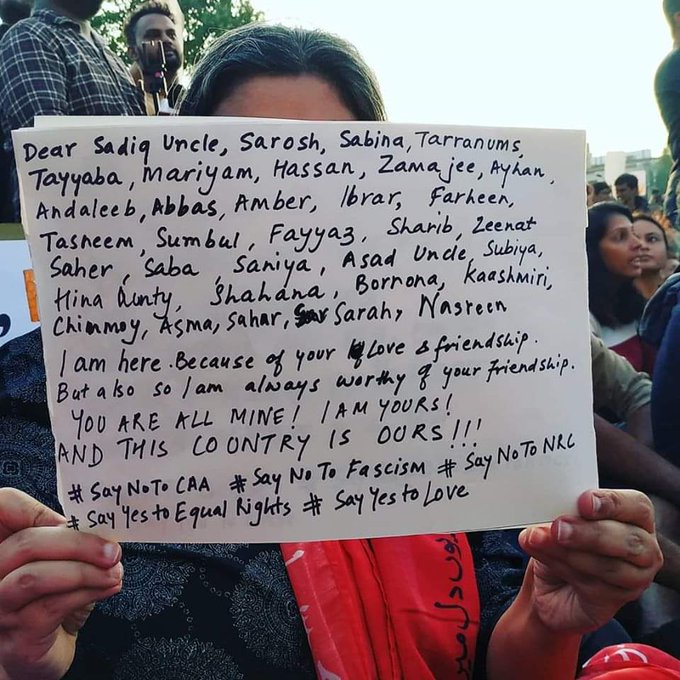 Dear Sadiq Uncle, Sarosh, Sabina, Tarranums,
Tayyaba, Mariyam, Hassan, Zamajee, Ayhan,
Andaleeb, Abbas, Amber, Ibrar, Farheen,
Tasneem, Sumbul, Fayyaz, Sharib, Zeenat
Saher, Saba, Saniya, Asad Uncle, Subiya,
Hina Aunty, Shahana, Bornona, Kaashmiri,
Chinmoy, Asma, Sahar, Sarah, Nasreen
I am here. Because of your Love & friendship.
But also so I am always worthy of your friendship.
YOU ARE ALL MINE! I AM YOURS!
AND THIS COUNTRY IS OURS!!!
# Say No To CAA # Say No To Fascism # Say No To NRC
# Say Yes to Equal Rights # Say Yes to Love